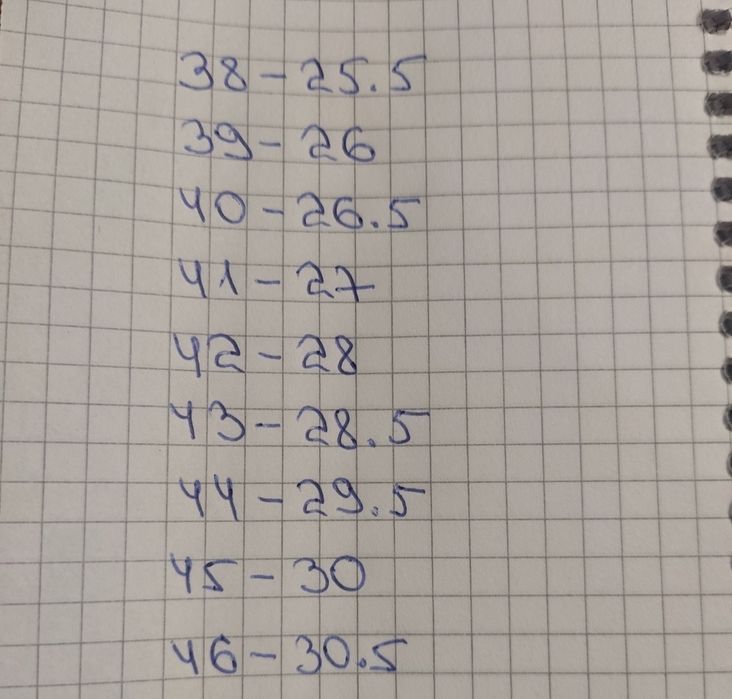 38 - 25.5
39 - 26
40 - 26.5
41 - 27
42 - 28
43 - 28.5
44 - 29.5
45 - 30
46 - 30.5